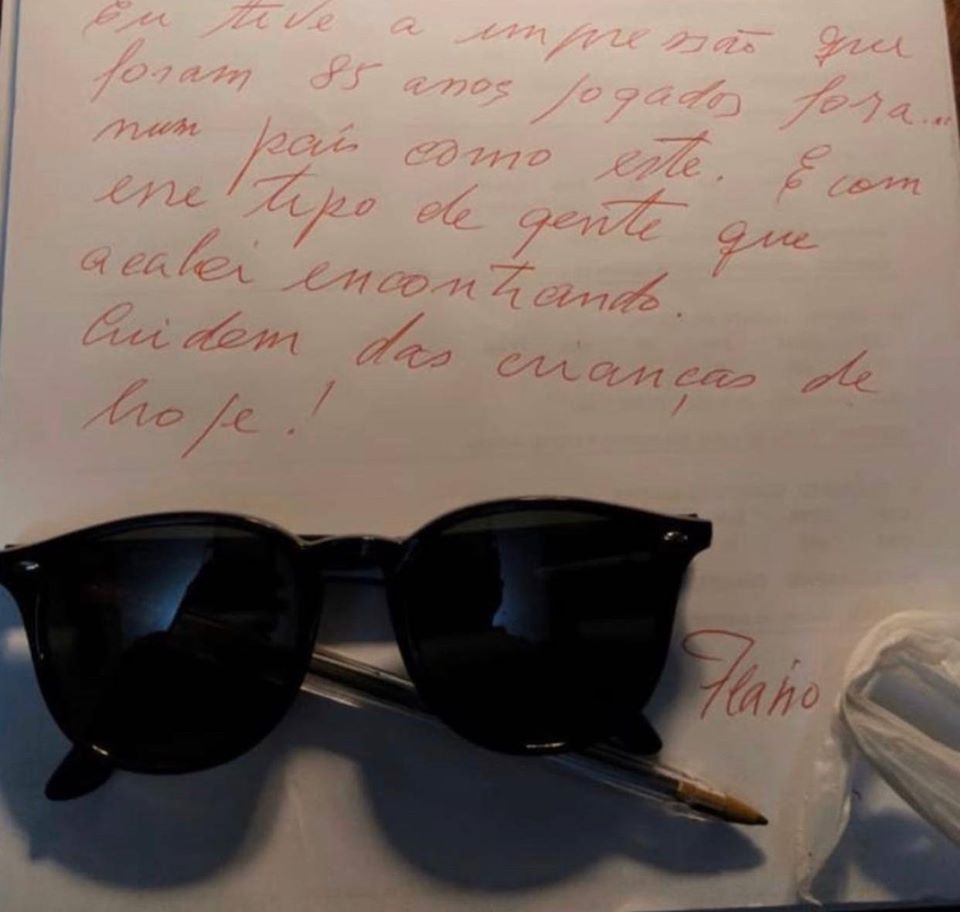 Eu tive a impressão que
foram 85 anos jogados fora...
num país como este. E com
esse tipo de gente que
acabei encontrando.
Cuidem das crianças de
hoje!
Flavio